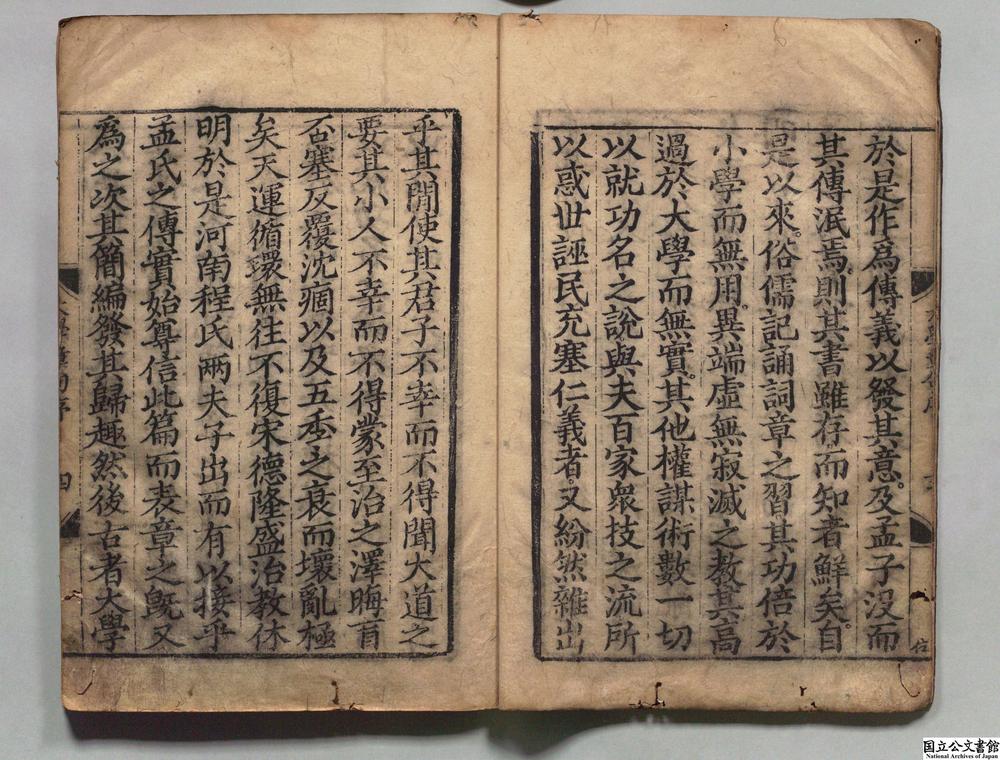 於是作爲傳義以發其意。及孟子沒而
其傳泯焉。則其書雖存而知者鮮矣。自
是以來。俗儒記誦詞章之習其功倍於
小學而無用。異端虛無寂滅之教其高
過於大學而無實。其他權謀術數一切
以就功名之說與夫百家衆技之流所
以惑世誣民充塞仁義者。又紛然雜出
乎其閒使其君子不幸而不得聞大道之
要其小人不幸而不得蒙至治之澤晦盲
否塞反覆沈痼以及五季之衰而壞亂極
矣天運循環無往不復宋德隆盛治教休
明於是河南程氏兩夫子出而有以接乎
孟氏之傳實始尊信此篇而表章之旣又
爲之次其簡編發其歸趣然後古者大學
四
国立公文書館
National Archives of Japan